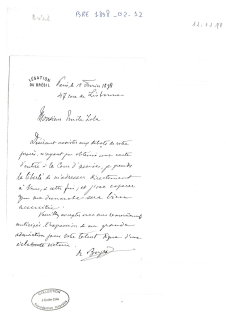 Brésil
BRE 1898_02_12
12.2.98
LÉGATION
DU BRÉSIL
Paris, le 12 Février 1898
47 rue de Lisbonne
Monsieur Emile Zola
Désirant assister aux débats de votre
procès, n'ayant pu obtenir une carte
d'entrée à la Cour d'assises, je prends
la liberté de m'adresser directement
à Vous, à cette fin, et j'ose espérer
que ma demande sera bien
accueillie.
Veuillez accepter avec mes remerciements
anticipés, l'expression de ma grande
admiration pour votre talent digne d'une
éclatante victoire.
COLLECTION